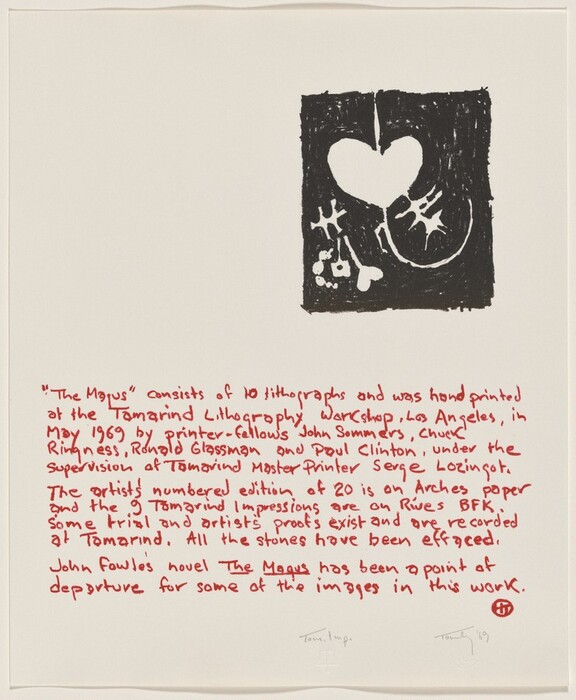 "The Magus" consists of 10 lithographs and was hand printed
at the Tamarind Lithography Workshop, Los Angeles, in
May 1969 by printer-fellows John Sommers, Chuck
Ringness, Ronald Glassman and Paul Clinton, under the
supervision of Tamarind Master Printer Serge Lozingot.
The artists numbered edition of 20 is on Arches paper
and the 9 Tamarind Impressions are on Rives BFK.
Some trial and artists proofs exist and are recorded
at Tamarind. All the stones have been effaced.
John Fowles novel The Magus has been a point of
departure for some of the images in this work.
Tam. Imp.
'69